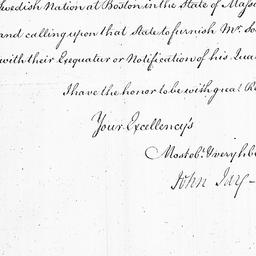 Swedish Nation at Boston in the State of Massa
and calling upon that State to furnish Mr. So
with their Exequater or Notification of his Qua
I have the honor to be with great Re
Your Excellency's
Most obt. & very hbl
John Jay